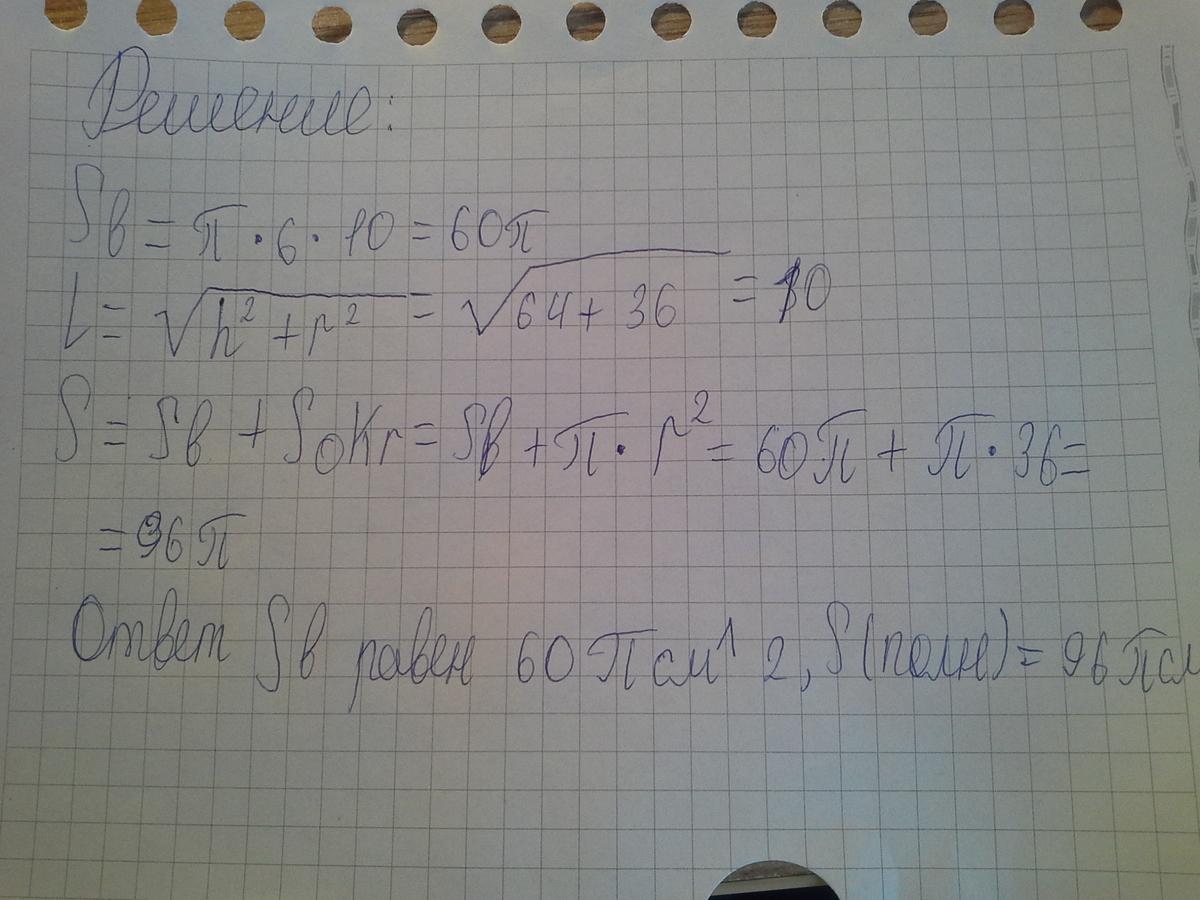 Решение:
Sв = π · 6 · 10 = 60π
L = √h² + r² = √64 + 36 = 10
S = Sв + Sокr = Sв + π · r² = 60π + π · 36 =
= 96π
Ответ Sв равен 60π см^2, S(полн) = 96π см